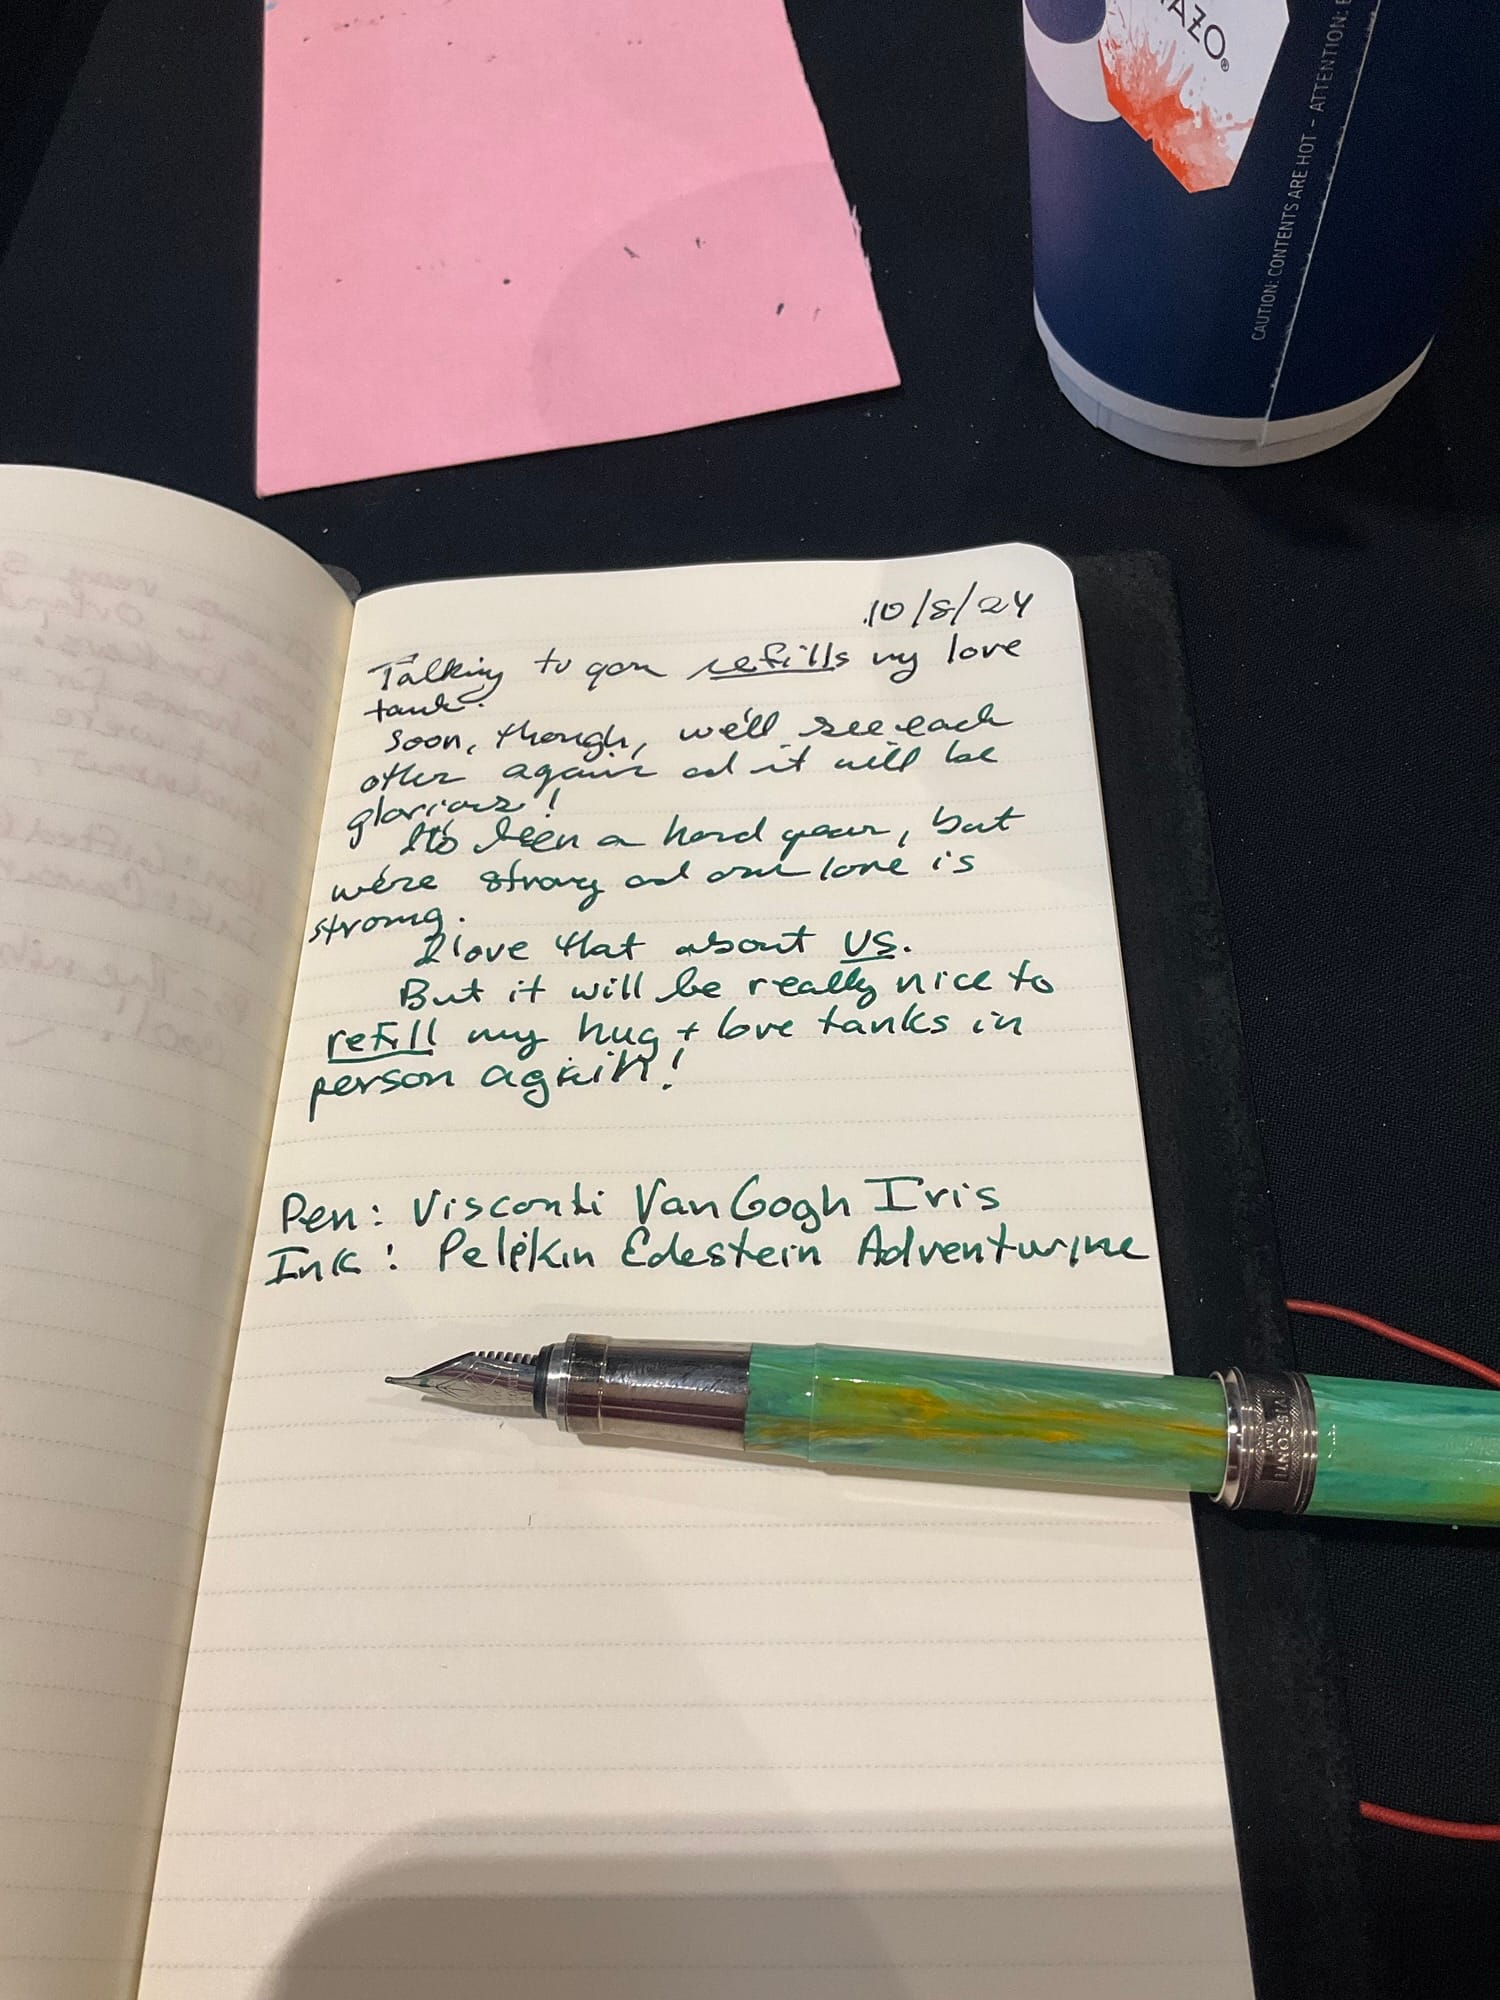 AZO®
CAUTION: CONTENTS ARE HOT - ATTENTION:
10/8/24
Talking to you refills my love
tank.
Soon, though, we'll see each
other again and it will be
glorious!
It's been a hard year, but
we're strong and our love is
strong.
I love that about US.
But it will be really nice to
refill my hug + love tanks in
person again!
Pen: Visconti Van Gogh Iris
Ink: Pelikin Edestein Adventurine
VISCONTI